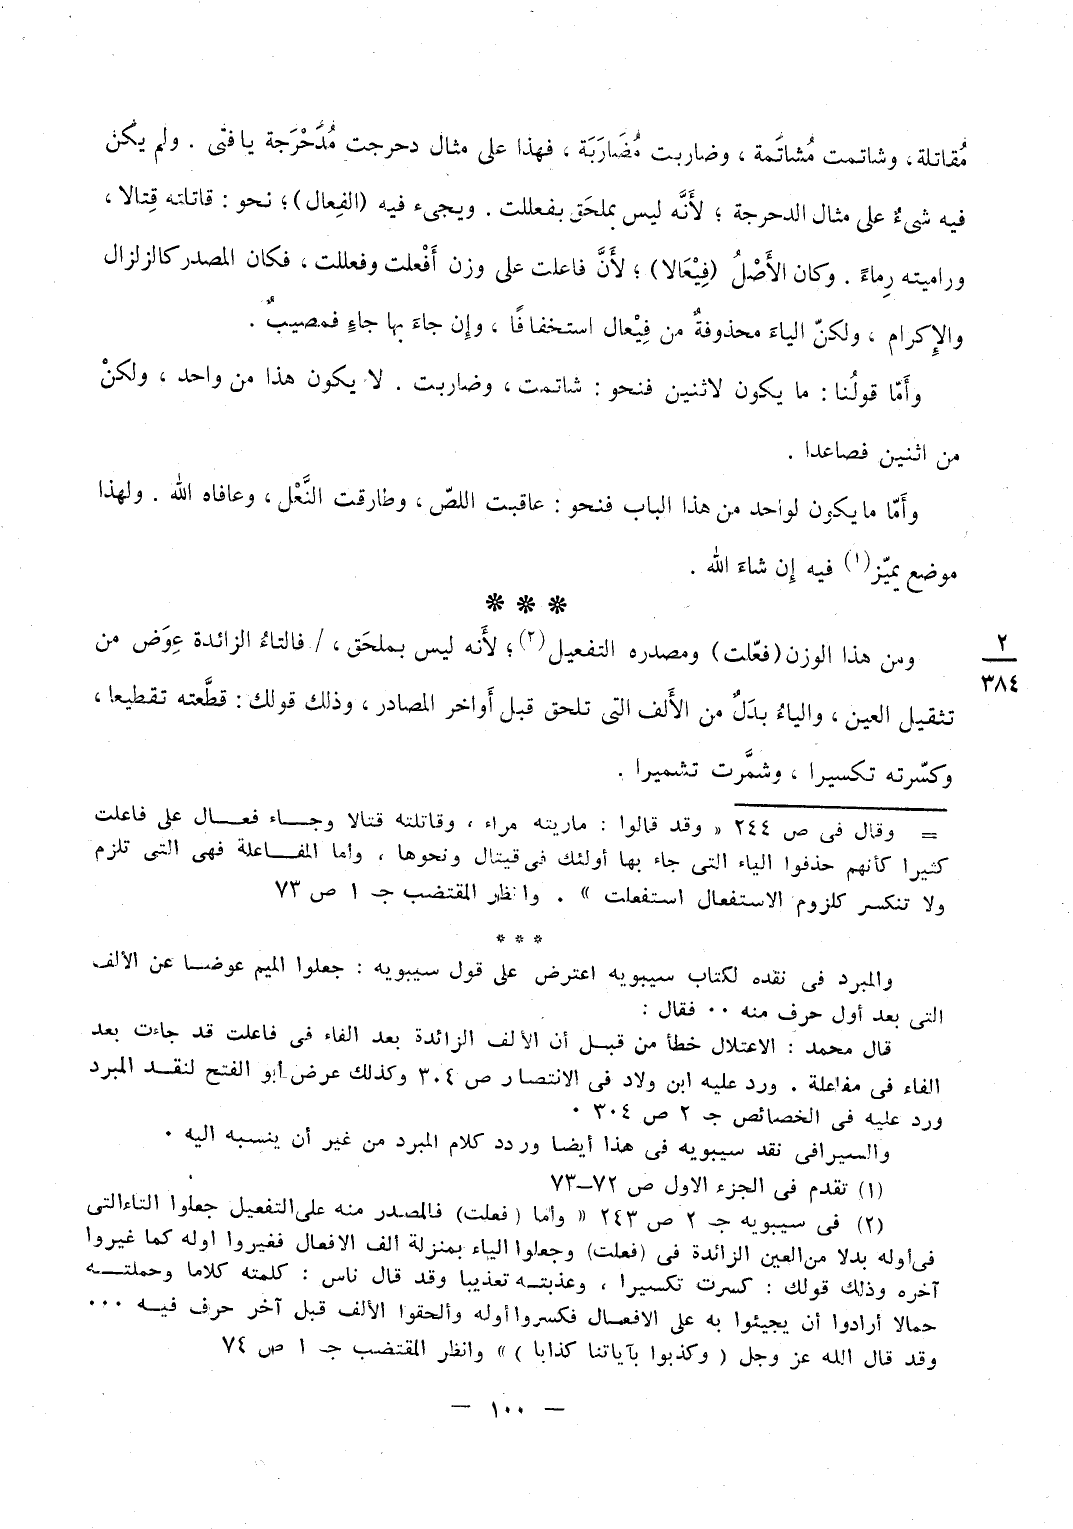 مُقاتلة ، وشاتمت مُشاتَمة ، وضاربت مُضَارَبَة ، فهذا على مثال دحرجت مُدَحْرَجة يا فتى . ولم يكن
فيه شىءٌ على مثال الدحرجة ؛ لأَنَّه ليس بملحَق بفعللت . ويجىء فيه (الفِعال) ؛ نحو : قاتلته قِتالا ،
وراميته رِماءً . وكان الأَصْلُ (فِيْعَالا) ؛ لأَنَّ فاعلت على وزن أَفْعلت وفعللت ، فكان المصدر كالزلزال
والإِكرام ، ولكنّ الياءَ محذوفةٌ من فِيْعال استخفافًا ، وإِن جاءَ بها جاءٍ فمصيبٌ .
وأَمّا قولُنا : ما يكون لاثنين فنحو : شاتمت ، وضاربت . لا يكون هذا من واحد ، ولكنْ
من اثنين فصاعدا .
وأَمّا ما يكون لواحد من هذا الباب فنحو : عاقبت اللصّ ، وطارقت النَّعْل ، وعافاه الله . ولهذا
موضع يميّز(١) فيه إِن شاءَ الله .
***
ومن هذا الوزن (فعّلت) ومصدره التفعيل(٢) ؛ لأَنه ليس بملحَق ، / فالتاءُ الزائدة عِوَض من
٢
٣٨٤
تثقيل العين ، والياءُ بدَلٌ من الأَلف التى تلحق قبل أَواخر المصادر ، وذلك قولك : قطَّعته تقطيعا ،
وكسّرته تكسيرا ، وشمَّرت تشميرا .
= وقال فى ص ٢٤٤ « وقد قالوا : ماريته مراء ، وقاتلته قتالا وجاء فعال على فاعلت
كثيرا كأنهم حذفوا الياء التى جاء بها أولئك فى قيتال ونحوها ، وأما المفاعلة فهى التى تلزم
ولا تنكسر كلزوم الاستفعال استفعلت » . وانظر المقتضب جـ ١ ص ٧٣
***
والمبرد فى نقده لكتاب سيبويه اعترض على قول سيبويه : جعلوا الميم عوضا عن الألف
التى بعد أول حرف منه ٠٠ فقال :
قال محمد : الاعتلال خطأ من قبل أن الألف الزائدة بعد الفاء فى فاعلت قد جاءت بعد
الفاء فى مفاعلة . ورد عليه ابن ولاد فى الانتصار ص ٣٠٤ وكذلك عرض أبو الفتح لنقد المبرد
ورد عليه فى الخصائص جـ ٢ ص ٣٠٤ ٠
والسيرافى نقد سيبويه فى هذا أيضا وردد كلام المبرد من غير أن ينسبه اليه ٠
(١) تقدم فى الجزء الاول ص ٧٢–٧٣
(٢) فى سيبويه جـ ٢ ص ٢٤٣ « وأما (فعلت) فالمصدر منه على التفعيل جعلوا التاء التى
فى أوله بدلا من العين الزائدة فى (فعلت) وجعلوا الياء بمنزلة ألف الافعال فغيروا اوله كما غيروا
آخره وذلك قولك : كسرت تكسيرا ، وعذبته تعذيبا وقد قال ناس : كلمته كلاما وحملته
حمالا أرادوا أن يجيئوا به على الافعال فكسروا أوله وألحقوا الألف قبل آخر حرف فيه ٠٠٠
وقد قال الله عز وجل ( وكذبوا بآياتنا كذابا ) » وانظر المقتضب جـ ١ ص ٧٤
— ١٠٠ —